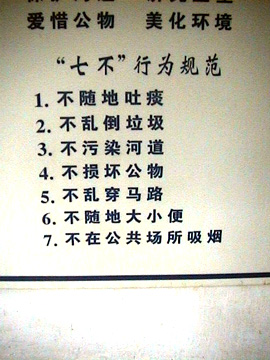 爱惜公物 美化环境
“七不”行为规范
1. 不随地吐痰
2. 不乱倒垃圾
3. 不污染河道
4. 不损坏公物
5. 不乱穿马路
6. 不随地大小便
7. 不在公共场所吸烟